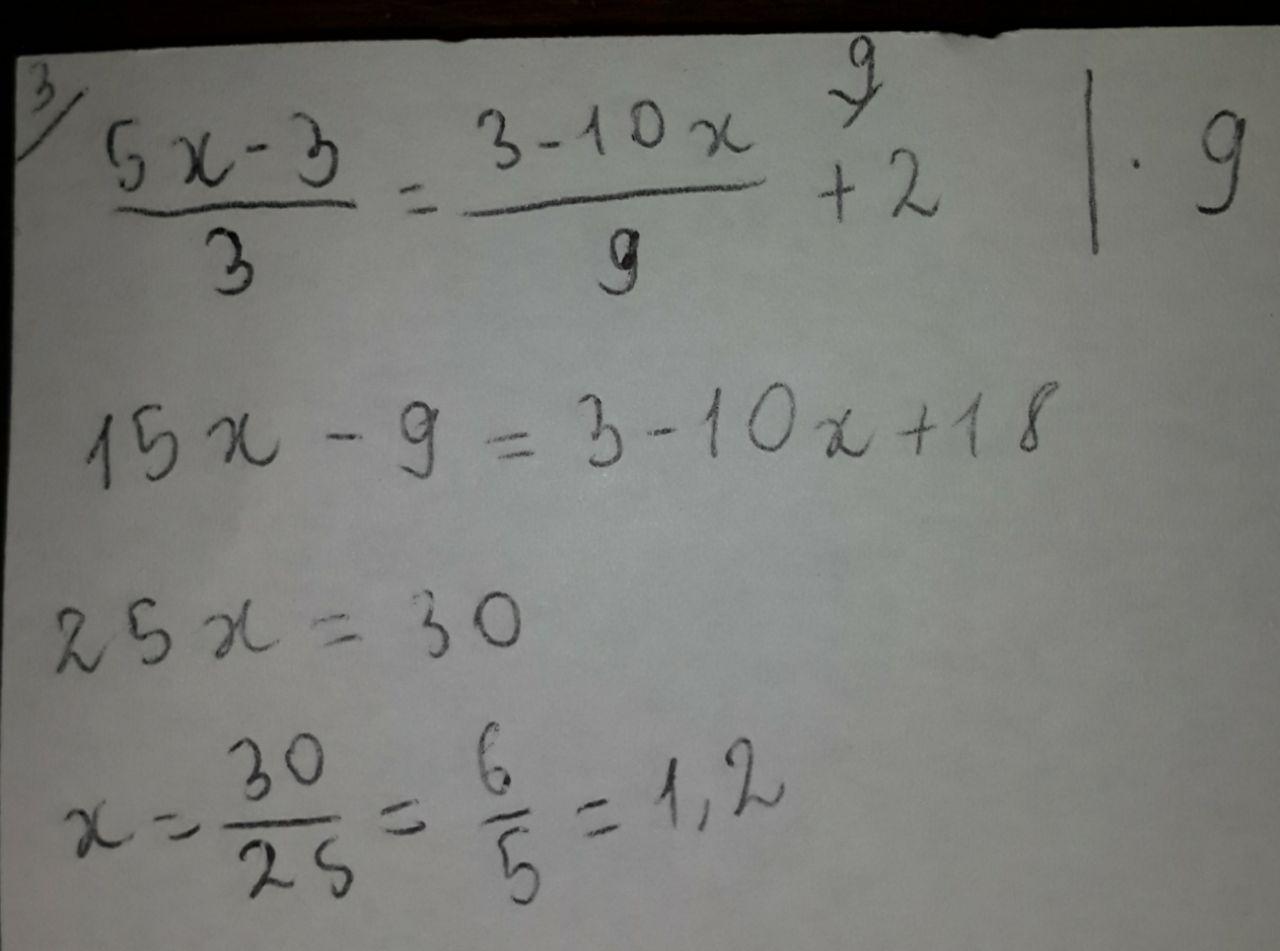 3/
9
(5x-3)/3 = (3-10x)/9 + 2 | · 9
15x - 9 = 3-10x+18
25x = 30
x = 30/25 = 6/5 = 1,2